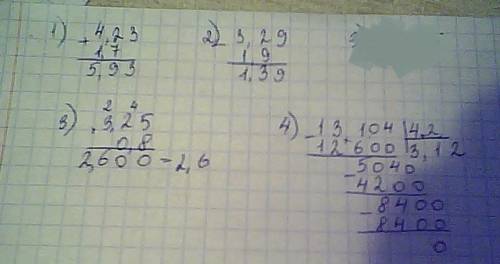 1) 4,23
+ 1,7
5,93
2) 3,29
- 1,9
1,39
3) 2 4
. 3,25
0,8
2,600 = 2,6
4) - 13,104 | 4,2
12 600 | 3,12
- 5040
4200
- 8400
8400
0